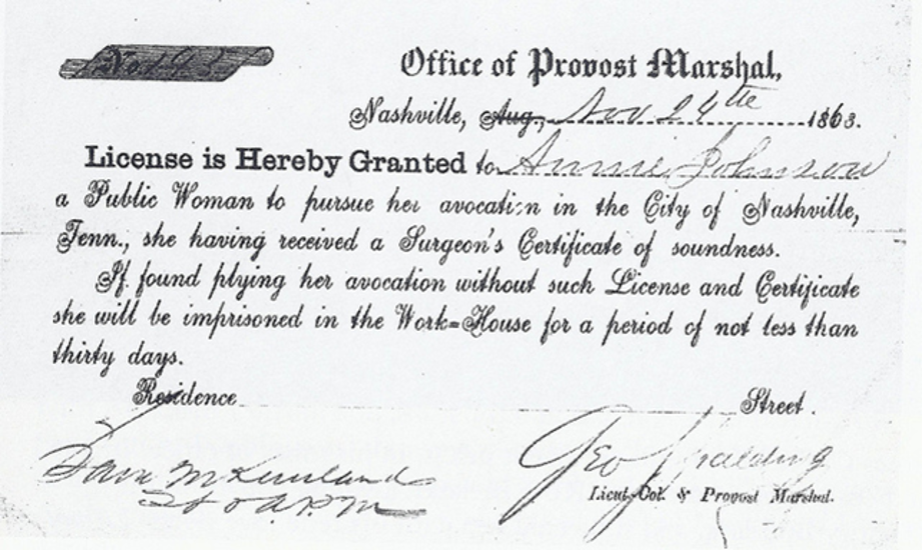 No. 193
Office of Provost Marshal,
Nashville, Aug., Nov 24th 1863.
License is Hereby Granted to Annie Johnson
a Public Woman to pursue her avocation in the City of Nashville,
Tenn., she having received a Surgeon's Certificate of soundness.
If found plying her avocation without such License and Certificate
she will be imprisoned in the Work=House for a period of not less than
thirty days.
Residence Street.
Geo Spalding
Lieut-Col. & Provost Marshal.